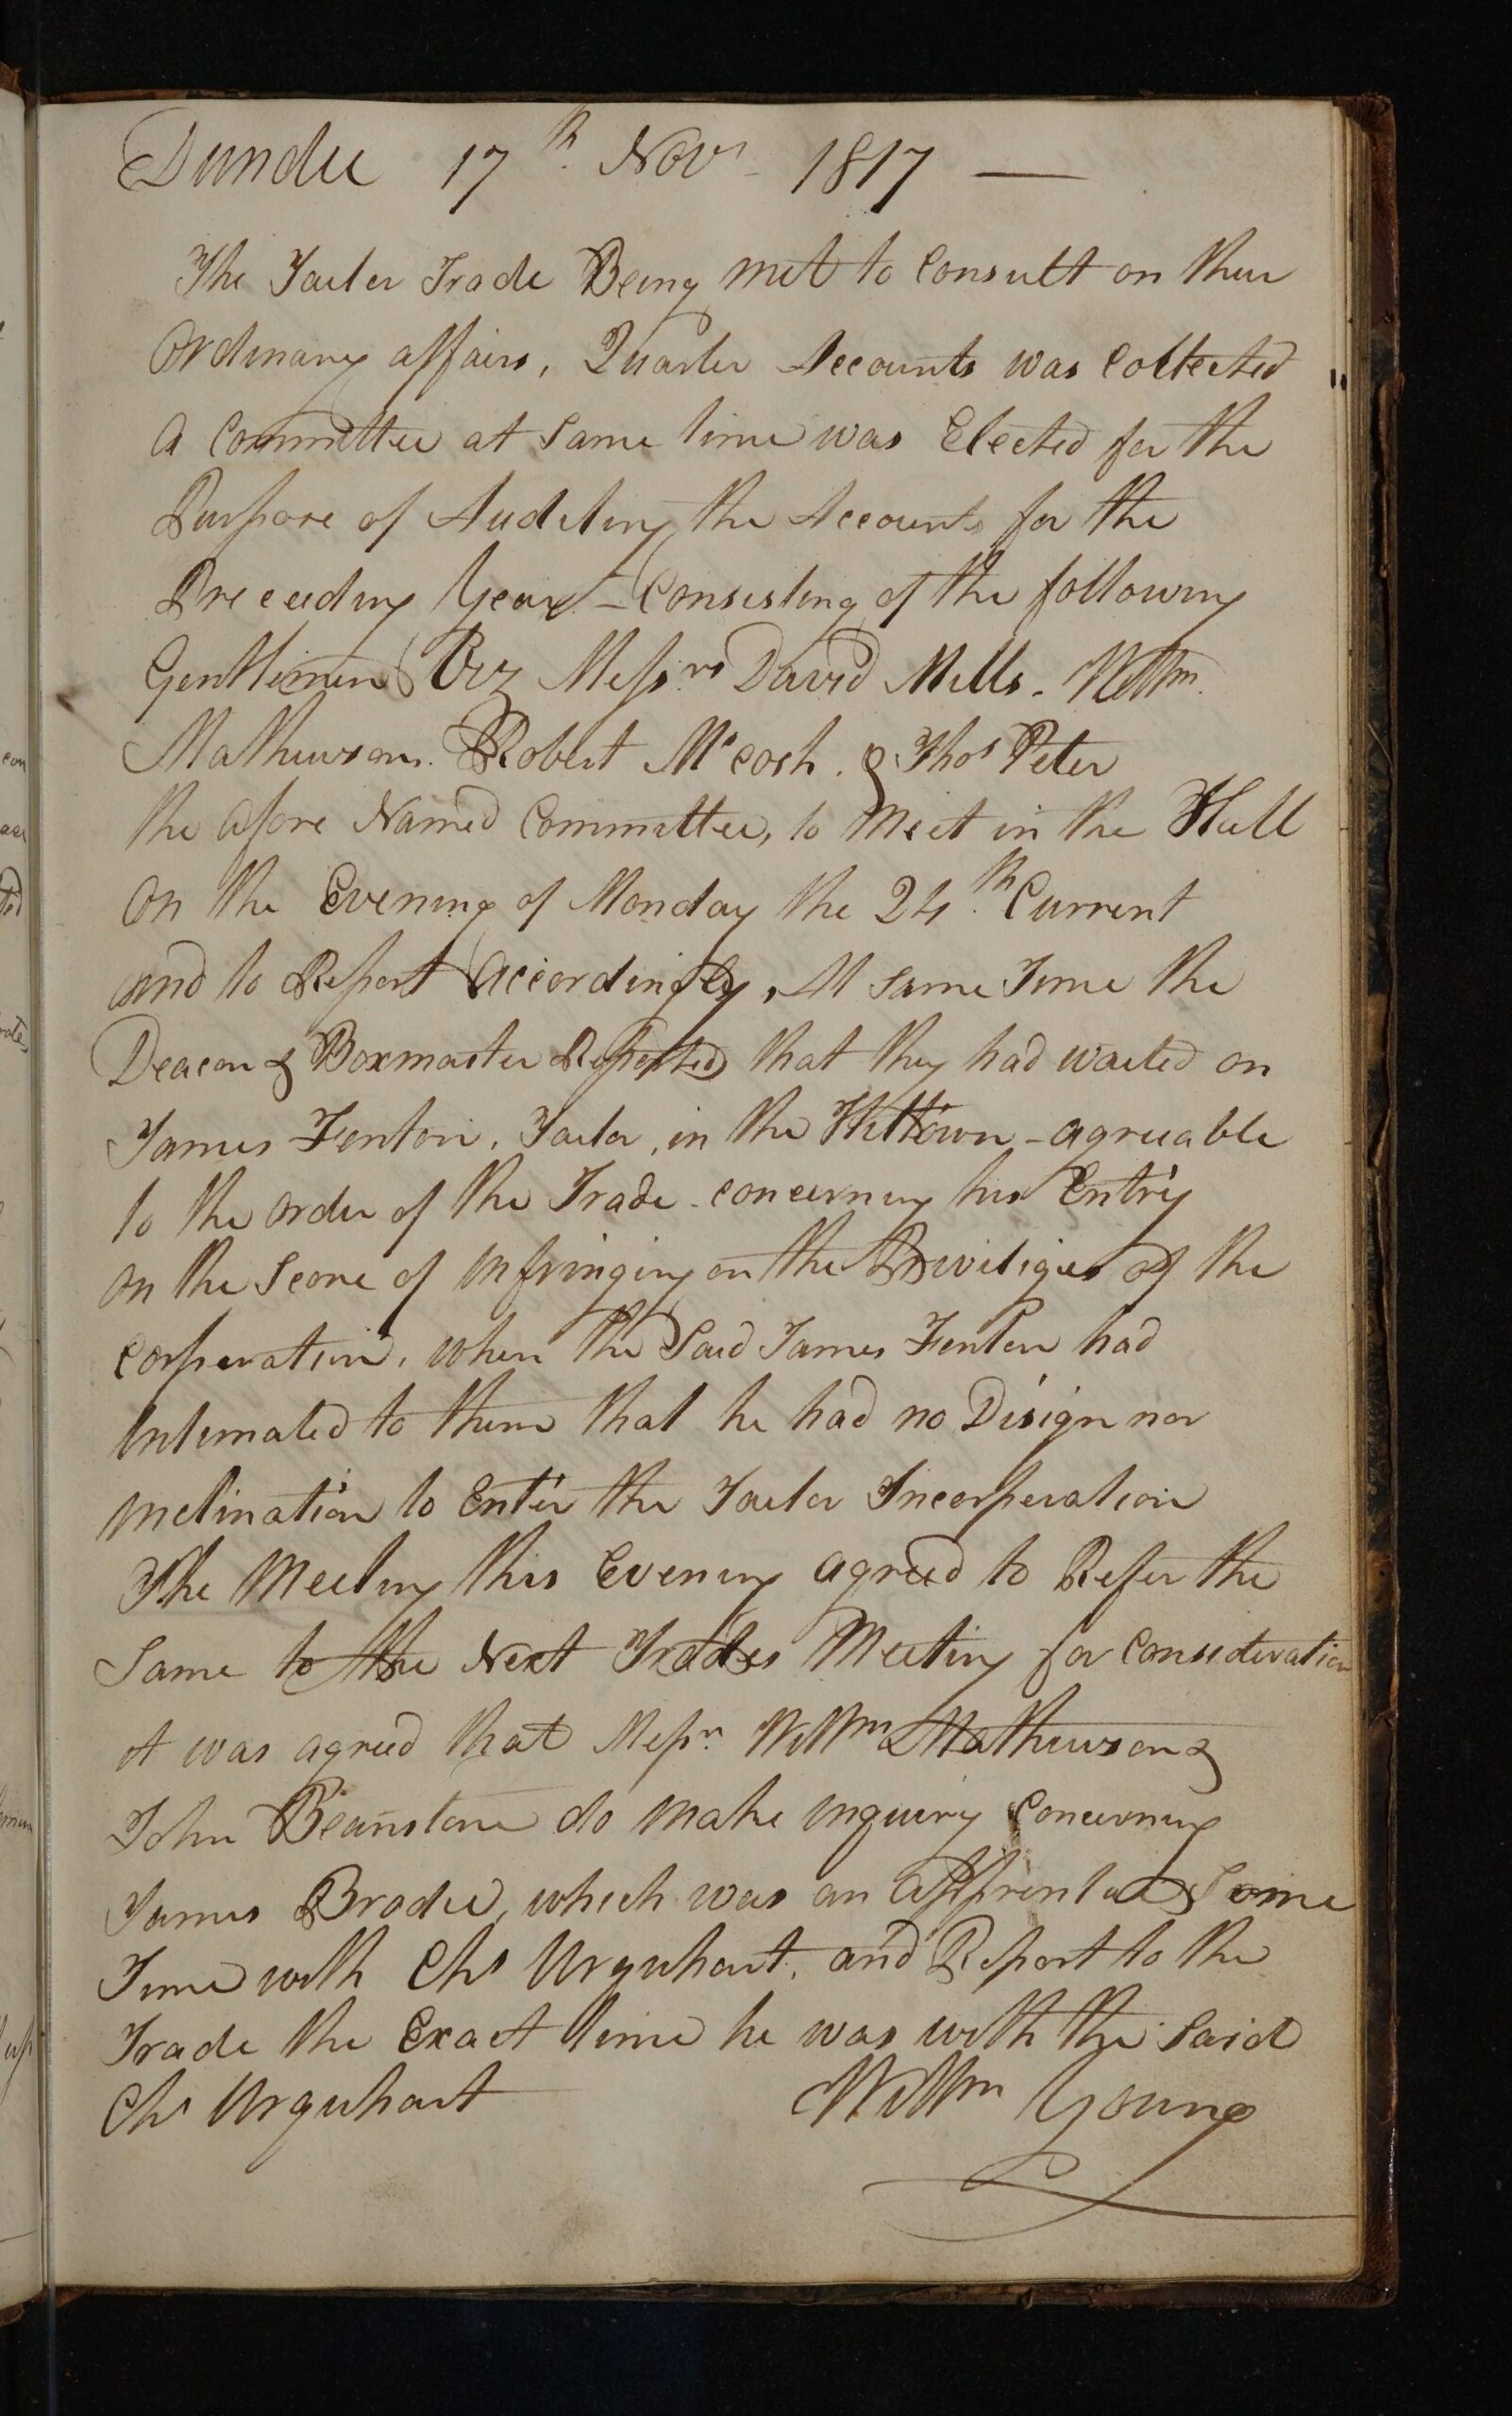 Dundee 17th Novr 1817 —
The Tailer Trade Being met to Consult on their
Ordinary affairs, Quarter Accounts was Collected
A Committee at Same time was Elected for the
Purpose of Auditing the Accounts for the
Preceeding Year - Consisting of the following
Gentlemen Viz Messrs David Mills. Willm.
Mathewson. Robert McCosh. & Thos Peter
the afore Named Committee, to Meet in the Hall
On the Evening of Monday the 24th Current
and to Report Accordingly, At Same Time the
Deacon & Boxmaster Reported that they had waited on
James Fenton, Tailor, in the Hilltown - agreeable
to the order of the Trade - concerning his Entry
on the Score of Infringing on the Priviliges of the
Corporation, when the Said James Fenton had
Intimated to them that he had no Disign nor
Inclination to Enter the Tailor Incorporation
The Meeting this Evening agreed to Refer the
Same to the Next Trades Meeting for Consideration
It was agreed that Messrs Willm Mathewson &
John Beanstone do Make Inquiry Concerning
James Brodie, which was an Apprentice Some
Time with Chs Urquhart, and Report to the
Trade the Exact time he was with the Said
Chs Urquhart Willm Young